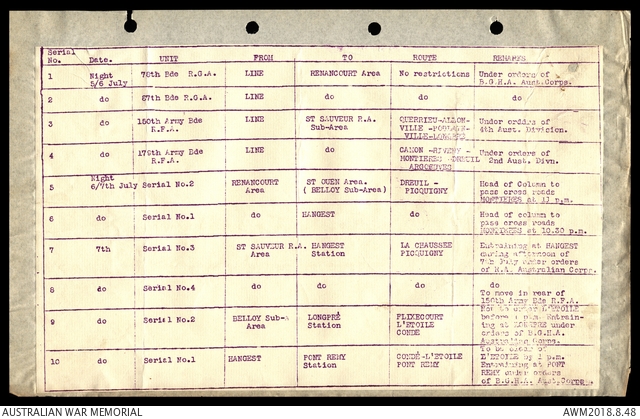 Serial No. Date. UNIT FROM TO ROUTE REMARKS
1 Night 5/6 July 78th Bde R.G.A. LINE RENANCOURT Area No restrictions Under orders of B.G.H.A. Aust.Corps.
2 do 87th Bde R.G.A. LINE do do do
3 do 150th Army Bde R.F.A. LINE ST SAUVEUR R.A. Sub-Area QUERRIEU-ALLON-VILLE -POULAIN-VILLE-LONGPRE Under orders of 4th Aust. Division.
4 do 179th Army Bde R.F.A. LINE do CAMON -RIVERY - MONTIERES -DREUIL ARGOEUVES Under orders of 2nd Aust. Divn.
5 Night 6/7th July Serial No.2 RENANCOURT Area ST OUEN Area. ( BELLOY Sub-Area) DREUIL - PICQUIGNY Head of Column to pass cross roads MONTIERES at 11 p.m.
6 do Serial No.1 do HANGEST do Head of column to pass cross roads MONTIERES at 10.30 p.m.
7 7th Serial No.3 ST SAUVEUR R.A. Area HANGEST Station LA CHAUSSEE PICQUIGNY Entraining at HANGEST during afternoon of 7th July under orders of M.A. Australian Corps.
8 do Serial No.4 do do do do To move in rear of 150th Army Bde R.F.A.
9 do Serial No.2 BELLOY Sub- Area LONGPRÉ Station FLIXECOURT L'ETOILE CONDE Not to enter L'ETOILE before p.m. Entraining at LONGPRE under orders of B.G.H.A. Australian Corps.
10 do Serial No.1 HANGEST PONT REMY Station CONDÉ-L'ETOILE PONT REMY To be clear of L'ETOILE by p.m. Entraining at PONT REMY under orders of B.G.H.A. Aust.Corps.
AUSTRALIAN WAR MEMORIAL
AWM2018.8.48